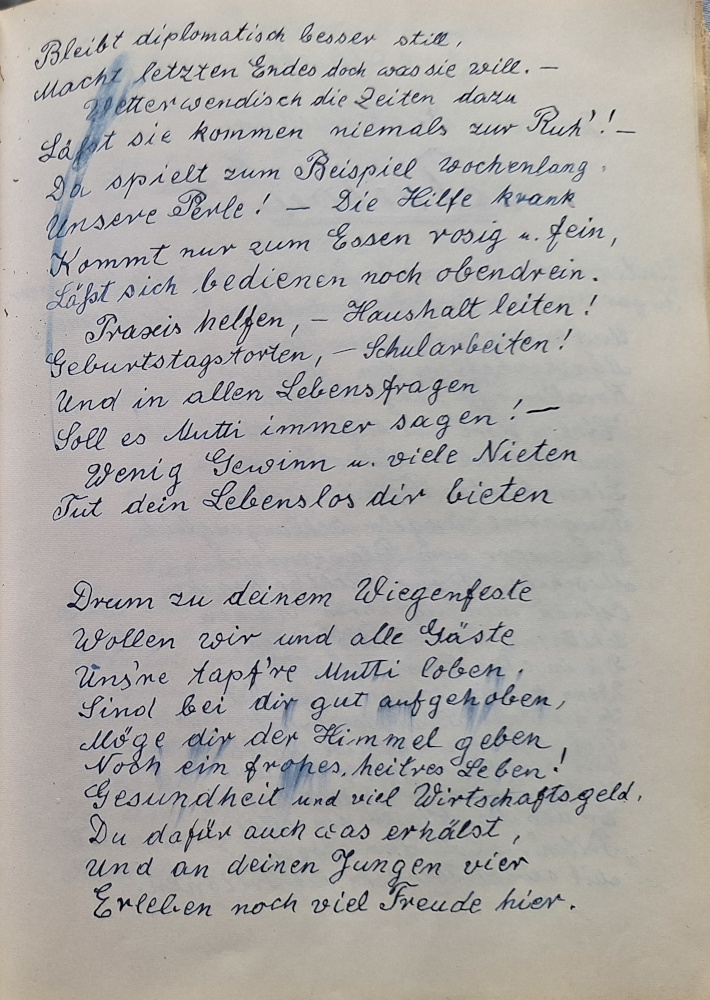 Bleibt diplomatisch besser still,
Macht letzten Endes doch was sie will. —
Wetterwendisch die Zeiten dazu
Läßt sie kommen niemals zur Ruh'! —
Da spielt zum Beispiel wochenlang
Unsere Perle! — Die Hilfe krank
Kommt nur zum Essen rosig u. fein,
Läßt sich bedienen noch obendrein.
Praxis helfen, — Haushalt leiten!
Geburtstagstorten, — Schularbeiten!
Und in allen Lebensfragen
Soll es Mutti immer sagen! —
Wenig Gewinn u. viele Nieten
Tut dein Lebenslos dir bieten
Drum zu deinem Wiegenfeste
Wollen wir und alle Gäste
Uns're tapf're Mutti loben,
Sind bei dir gut aufgehoben,
Möge dir der Himmel geben,
Noch ein frohes, heitres Leben!
Gesundheit und viel Wirtschaftsgeld,
Du dafür auch was erhälst,
Und an deinen Jungen vier
Erleben noch viel Freude hier.